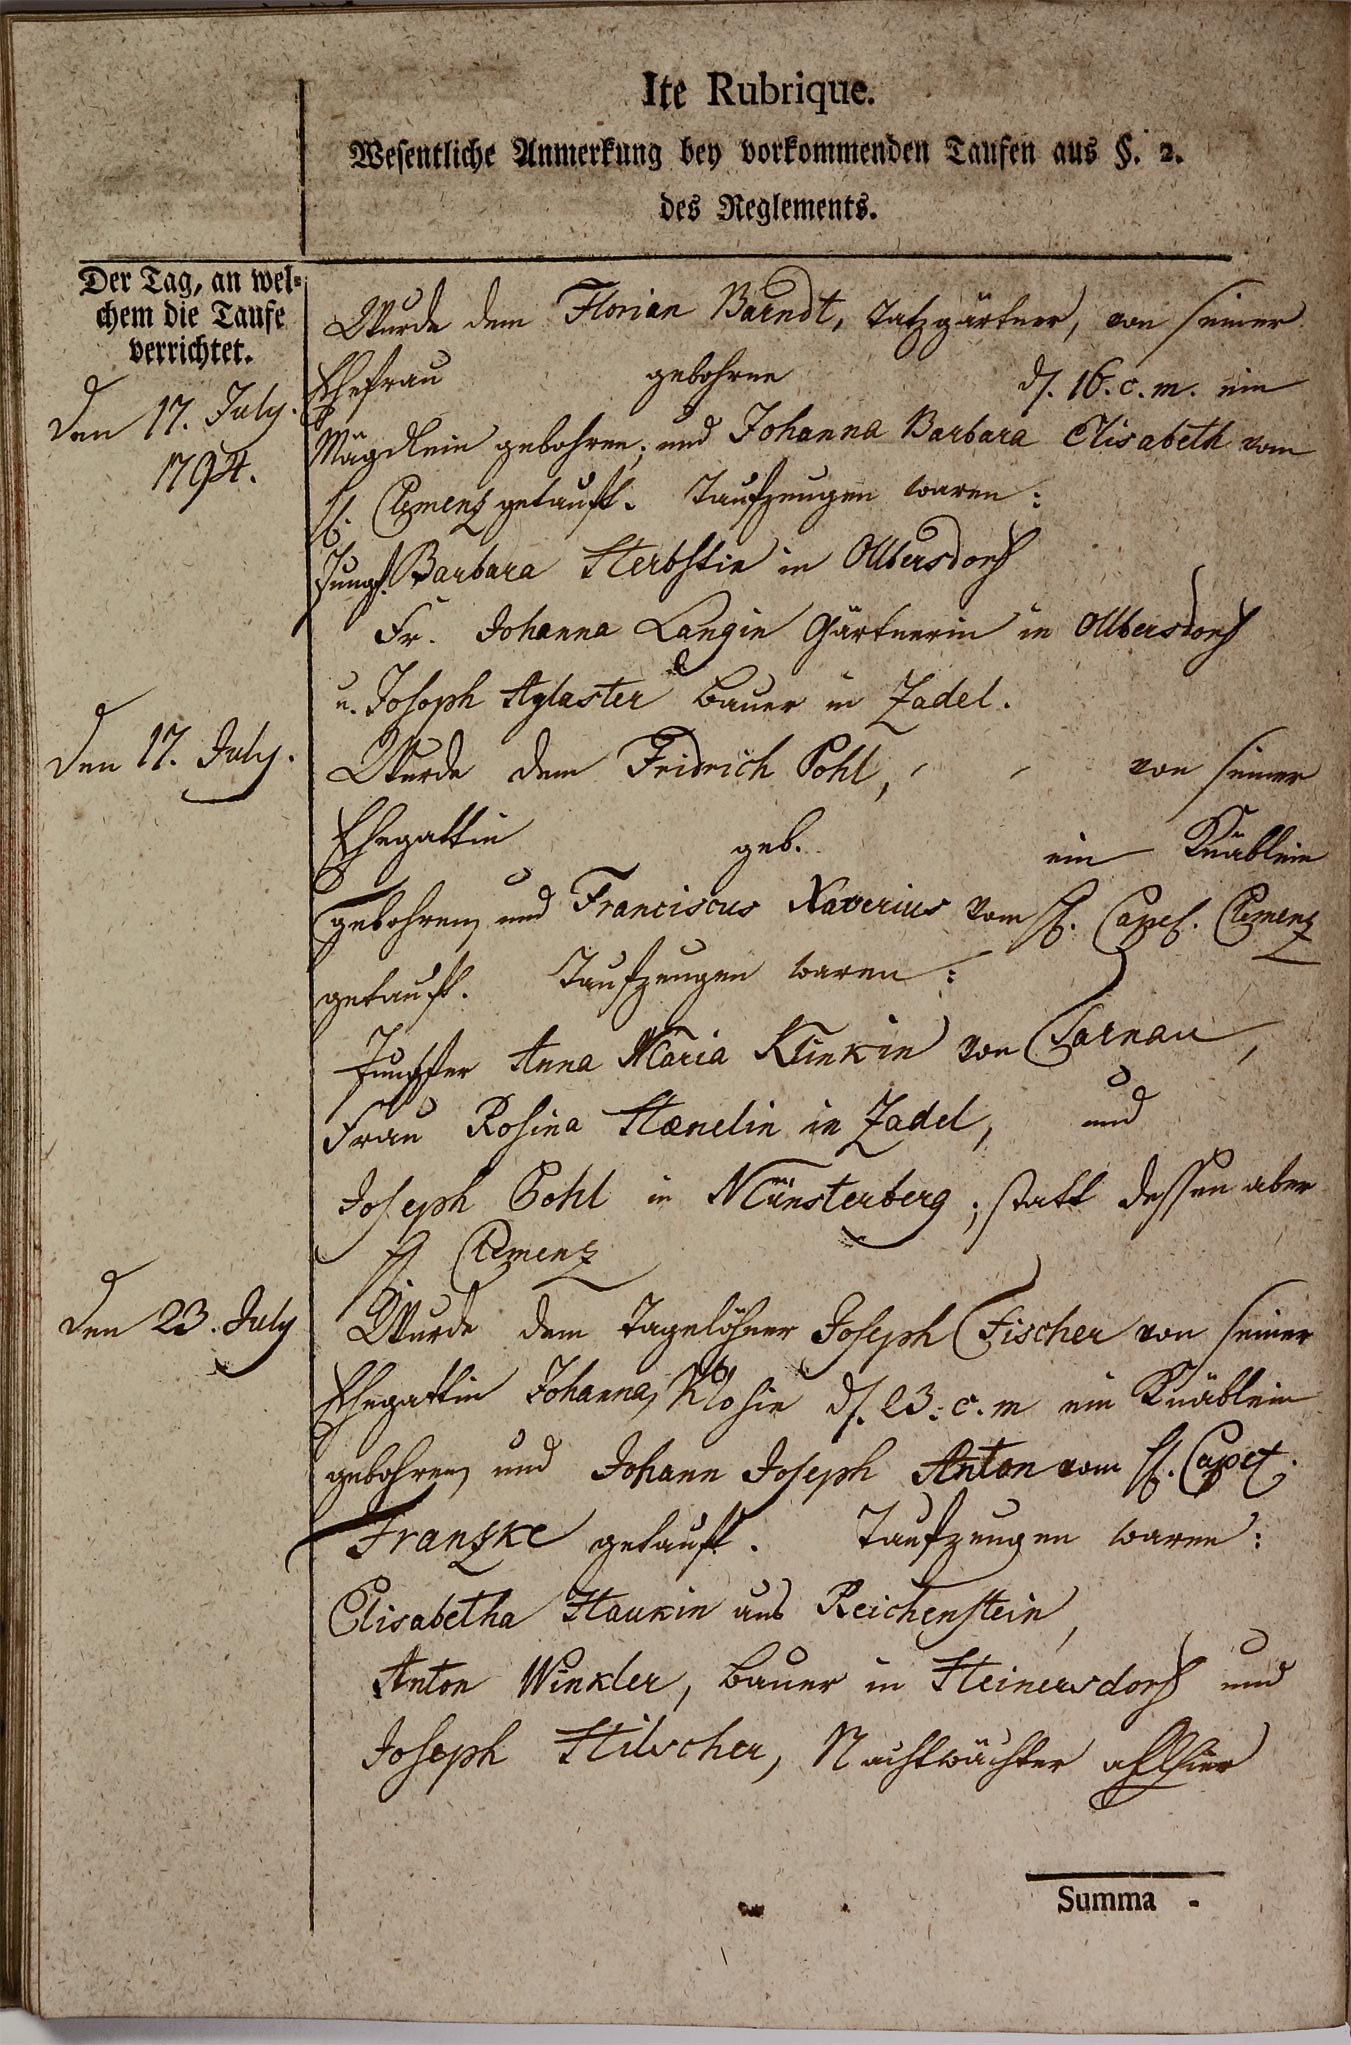 Ite Rubrique.
Wesentliche Anmerkung bey vorkommenden Taufen aus §. 2.
des Reglements.
Der Tag, an wel-
chem die Taufe
verrichtet.
Den 17. July.
1794.
Wurde dem Florian Barndt, von seiner
Ehefrau gebohrne d. 16. c. m. ein
Mägdlein gebohren; und Johanna Barbara Elisabeth vom
H. Clemenz getauft. Taufzeugen waren:
Jungf. Barbara Herbstin in Olbersdorf
Fr. Johanna Langin Gärtnerin in Olbersdorf
u. Joseph Aglaster Bauer in Zadel.
Den 17. July.
Wurde dem Fridrich Pohl, von seiner
Ehegattin geb. ein Knäblein
gebohren, und Franciscus Xaverius vom H. Capel. Clemenz
getauft. Taufzeugen waren:
Jungfer Anna Maria Klinkin von Tarnau,
Frau Rosina Hænelin in Zadel, und
Joseph Pohl in Münsterberg; statt dessen aber
H. Clemenz
Den 23. July
Wurde dem Tagelöhner Joseph Fischer von seiner
Ehegattin Johanna, Klosin d. 23. c. m ein Knäblein
gebohren, und Johann Joseph Anton vom H. Capel.
Franzke getauft. Taufzeugen waren:
Elisabetha Haukin aus Reichenstein,
Anton Winkler, Bauer in Heinersdorf und
Joseph Hilscher, Nachtwächter allhier
Summa -